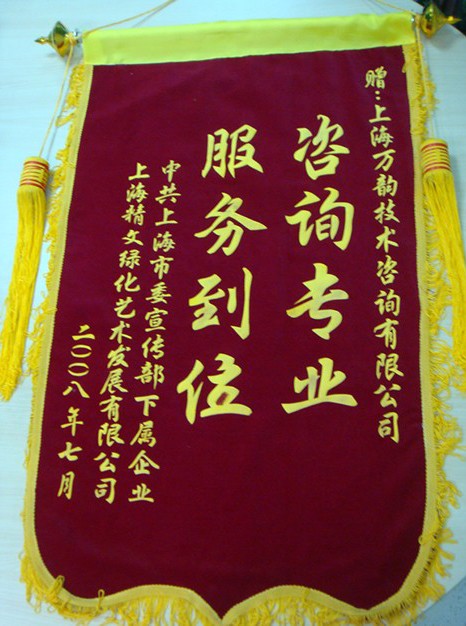 赠：上海万韵技术咨询有限公司
咨询专业
服务到位
中共上海市委宣传部下属企业
上海精文绿化艺术发展有限公司
二〇〇八年七月